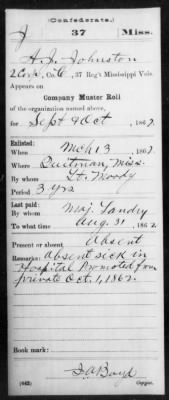 (Confederate.)
J 37 Miss.
A. J. Johnston
2 Corp, Co. C, 37 Reg't Mississippi Vols.
Appears on
Company Muster Roll
of the organization named above,
for Sept & Oct, 1862.
Enlisted:
When Mch 13, 1862.
Where Quitman, Miss.
By whom Lt. Moody
Period 3 yrs
Last paid:
By whom Maj. Landry
To what time Aug. 31, 1862.
Present or absent Absent
Remarks: Absent sick in
Hospital Promoted from
private Oct. 1, 1862.
Book mark:
(642) Copyist.